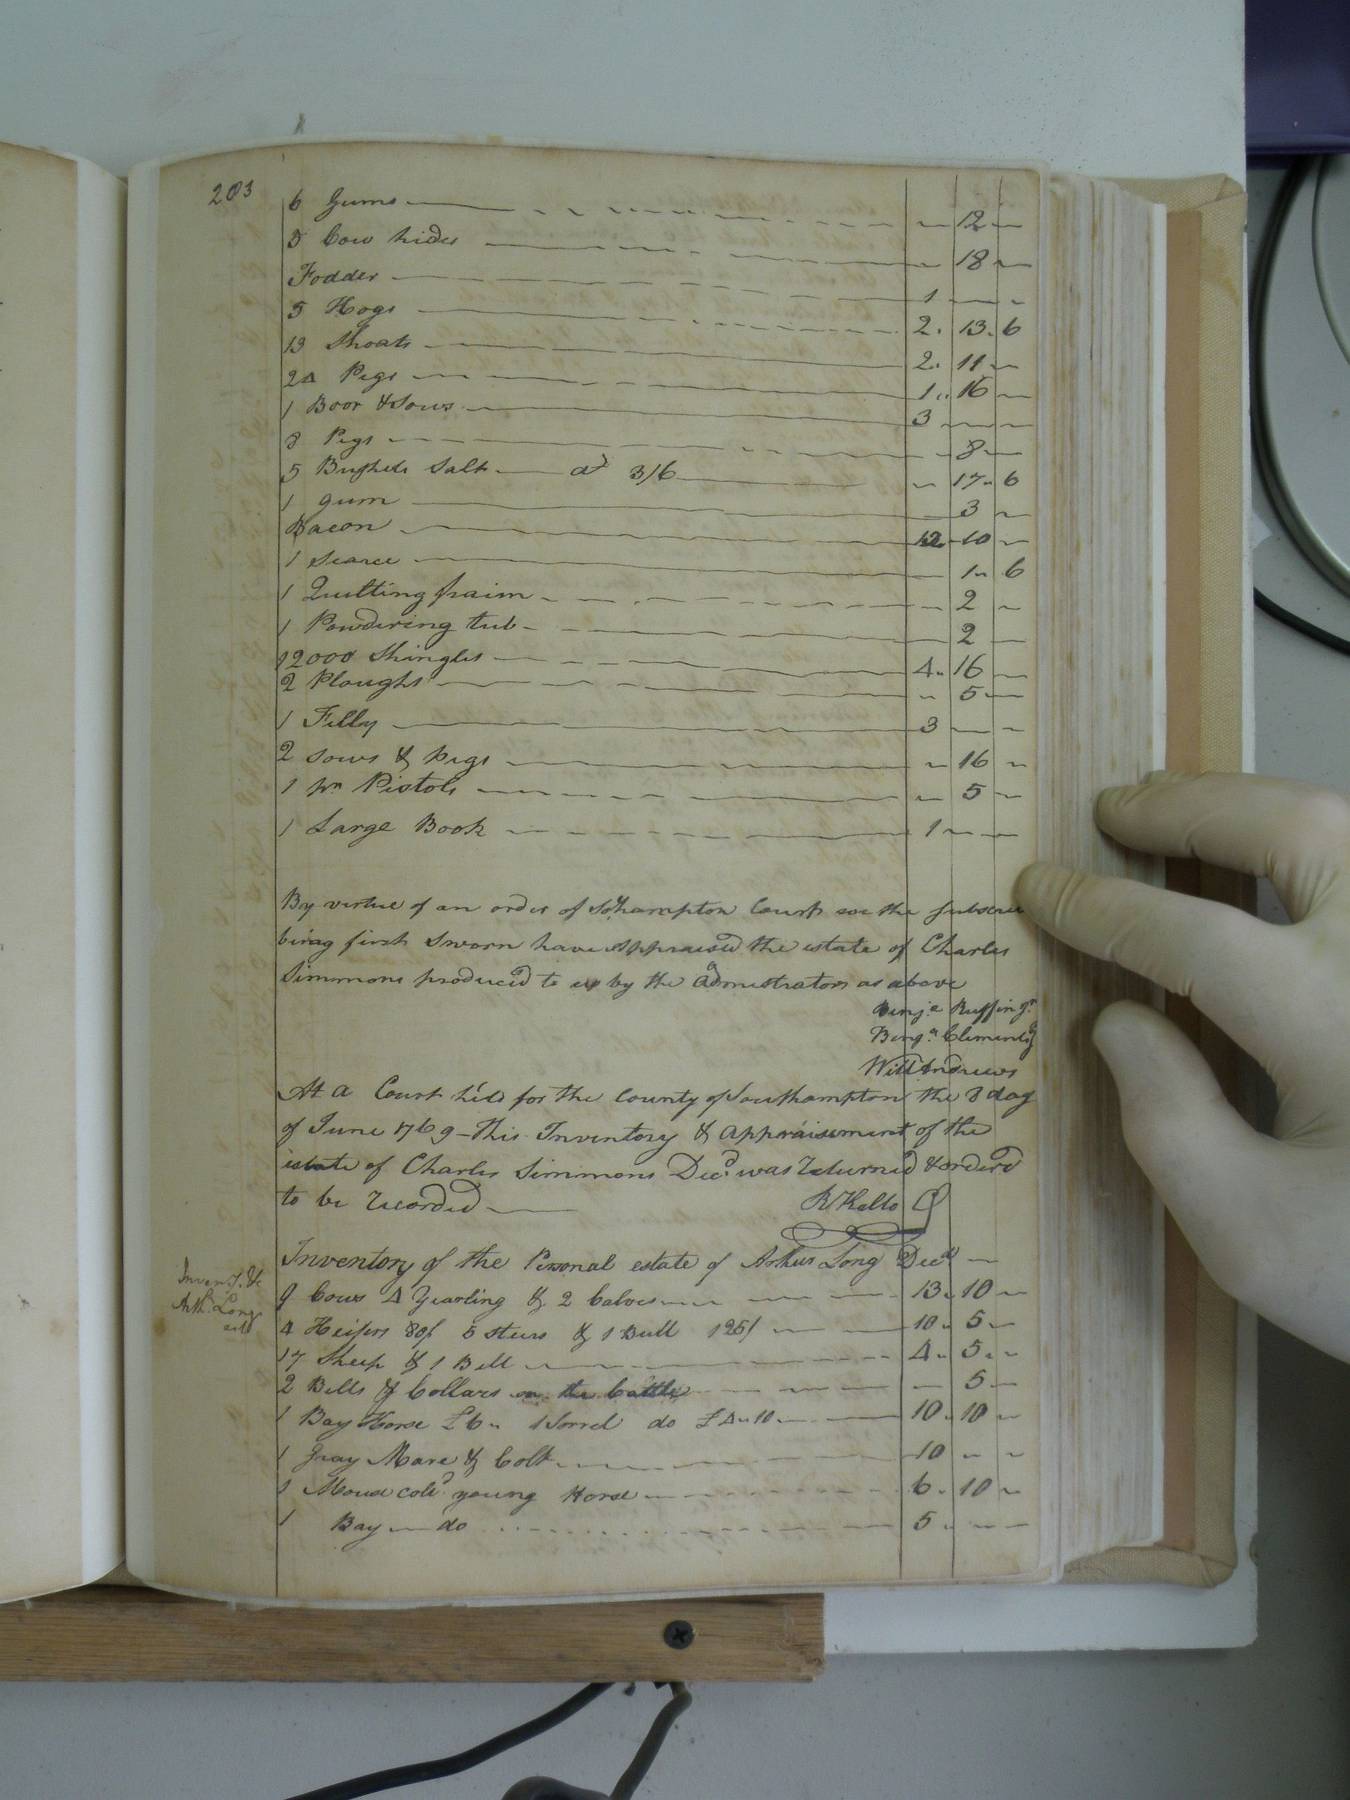 203
6 Gums — — 12 —
5 Cow hides — — 18 —
Fodder — 1 — —
5 Hogs — 2 . 13 . 6
13 Shoats — 2 . 11 —
24 Pigs — 1 .. 16 —
1 Boor & Sows — 3 — —
8 Pigs — — 8 —
5 Bushels Salt — at 3/6 — — 17 .. 6
1 gum — 3 —
Bacon — 12 .. 10 —
1 Searce — 1 .. 6
1 Quilting fraim — — 2 —
1 Powdiring tub — 2 —
12000 Shingles — 4 .. 16 —
2 Ploughs — — 5 —
1 Filly — 3 — —
2 Sows & Pigs — — 16 —
1 pr Pistols — — 5 —
1 Large Book — 1 — —
By virtue of an order of Sohampton Court we the subscri
bing first Sworn have Appraised the estate of Charles
Simmons produced to us by the Admistrators as above
Benja Ruffin Jr
Benja Clements
Will Andrews
At a Court held for the County of Southampton the 8 day
of June 1769 — this Inventory & Appraisement of the
estate of Charles Simmons Decd was Returned & orderd
to be Recorded — R Kello
Inventory of the Personal estate of Arthur Long Decd —
Inventy. &c
Arth. Long
9 Cows 4 Yearling & 2 Calves — 13 .. 10 —
4 Heifers 80/ 5 steers & 1 Bull 125/ — 10 .. 5 —
17 Sheep & 1 Bell — 4 .. 5 .. —
2 Bells & Collars on the Cattle — — 5 —
1 Bay Horse £6 .. 1 Sorrel do £4 .. 10 — 10 .. 10 —
1 Gray Mare & Colt — 10 — —
1 Mouse cold young Horse — 6 .. 10 —
1 Bay — do — 5 .. — —